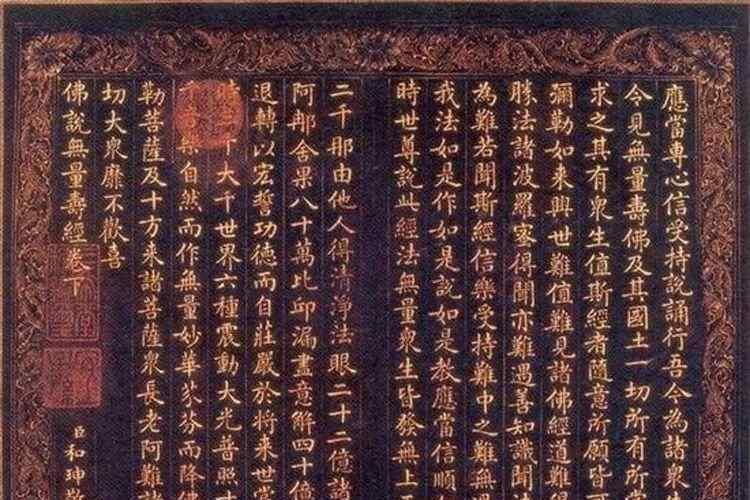 應當專心信受持說誦行吾今為諸衆
令見無量壽佛及其國土一切所有所
求之其有衆生值斯經者隨意所願皆
彌勒如來興世難值難見諸佛經道難
勝法諸波羅蜜得聞亦難遇善知識聞
為難若聞斯經信樂受持難中之難無過
我法如是作如是說如是教應當信順
時世尊說此經法無量衆生皆發無上
二千那由他人得清淨法眼二十二億諸
阿那舍果八十萬比邱漏盡意解四十億
退轉以宏誓功德而自莊嚴於將來世當
時三千大千世界六種震動大光普照十
樂自然而作無量妙華芬而降佛
勒菩薩及十方來諸菩薩衆長老阿難諸
切大衆靡不歡喜
佛說無量壽經卷下
臣和珅敬